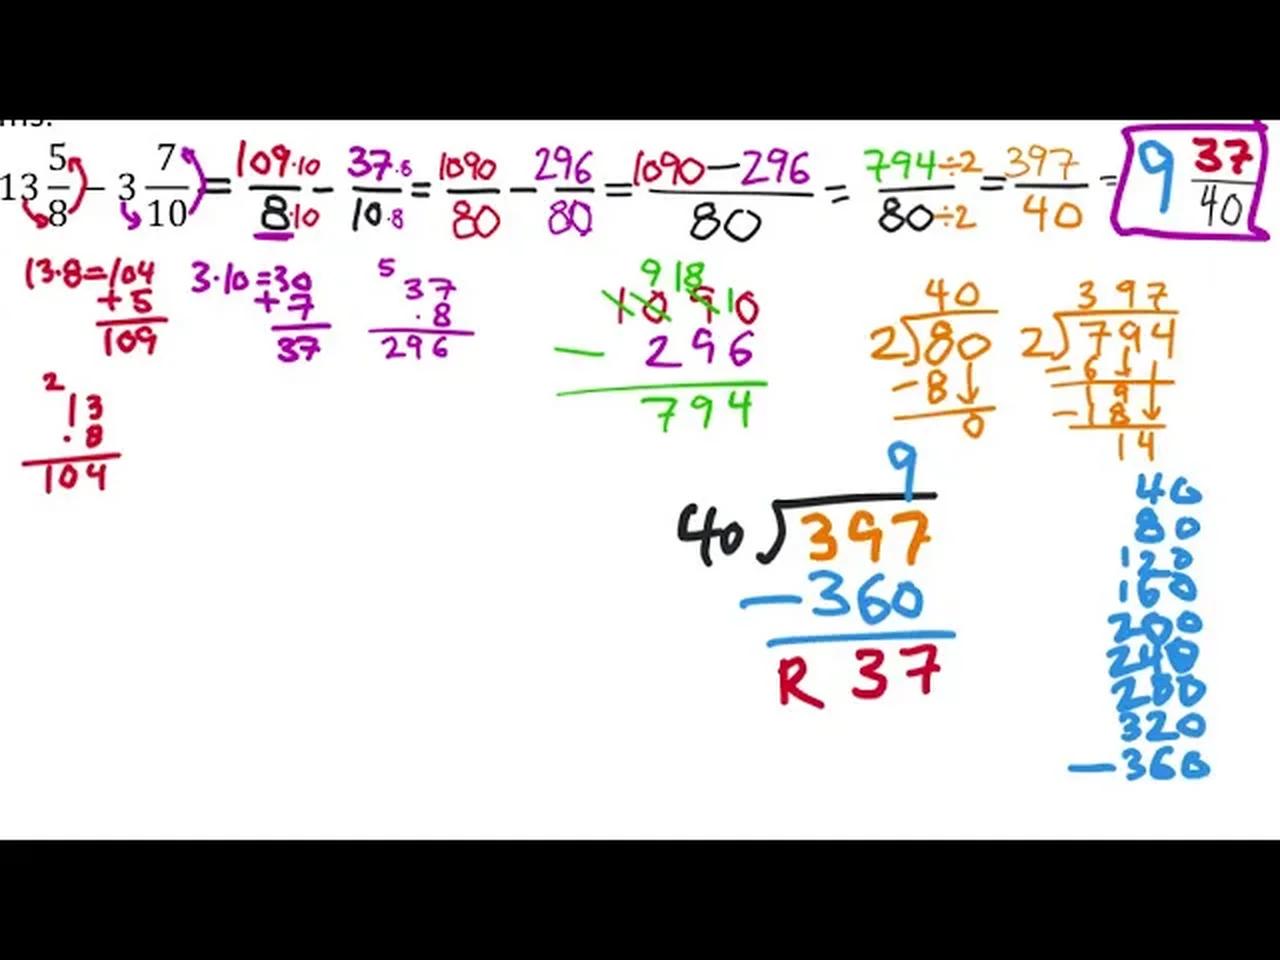 13 5/8 - 3 7/10 = 109·10/8·10 - 37·8/10·8 = 1090/80 - 296/80 = 1090-296/80 = 794÷2/80÷2 = 397/40 = 9 37/40
13·8=104
+5
109
3·10=30
+7
37
5
37
·8
296
2
13
·8
104
9 18
10 9 10
- 296
794
40
2)80
-8
0
397
2)794
-6
19
-18
14
9
40)397
-360
R 37
40
80
120
160
200
240
280
320
-360